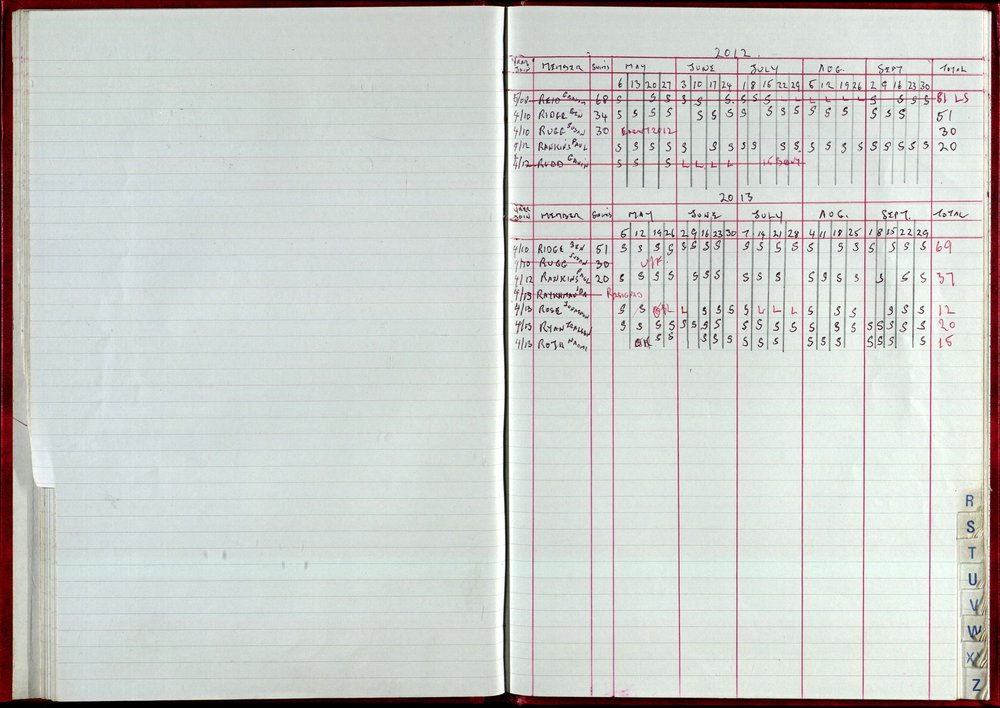 2012.
YEAR JOIN MEMBER SWIMS MAY JUNE JULY AUG. SEPT TOTAL
6 13 20 27 3 10 17 24 1 8 15 22 29 5 12 19 26 2 9 16 23 30
5/08 REID 68 S S S S S S S S S L L L L L S S S S 81 LS
4/10 RIDGE BEN 34 S S S S S S S S S S S S S S S 51
4/10 RUGG SUSAN 30 2012 30
4/12 RANKINS PAUL S S S S S S S S S S S S S S S S S S S S 20
4/12 RUDD GAVIN S S S L L L L
2013
YEAR JOIN MEMBER SWIMS MAY JUNE JULY AUG. SEPT. TOTAL
5 12 19 26 2 9 16 23 30 7 14 21 28 4 11 18 25 1 8 15 22 29
4/10 RIDGE BEN 51 S S S S S S S S S S S S S S S S S S 69
4/10 RUGG SUSAN 30 U/F
4/12 RANKINS PAUL 20 S S S S S S S S S S S S S S S S S 37
4/13 RESIGNED
4/13 ROSE S S L L S S S S L L L S S S S S S 12
4/13 RYAN S S S S S S S S S S S S S S S S S S S S 20
4/13 ROTH NAOMI S S S S S S S S S S S S S S S 15
R
S
T
U
V
W
X
Z